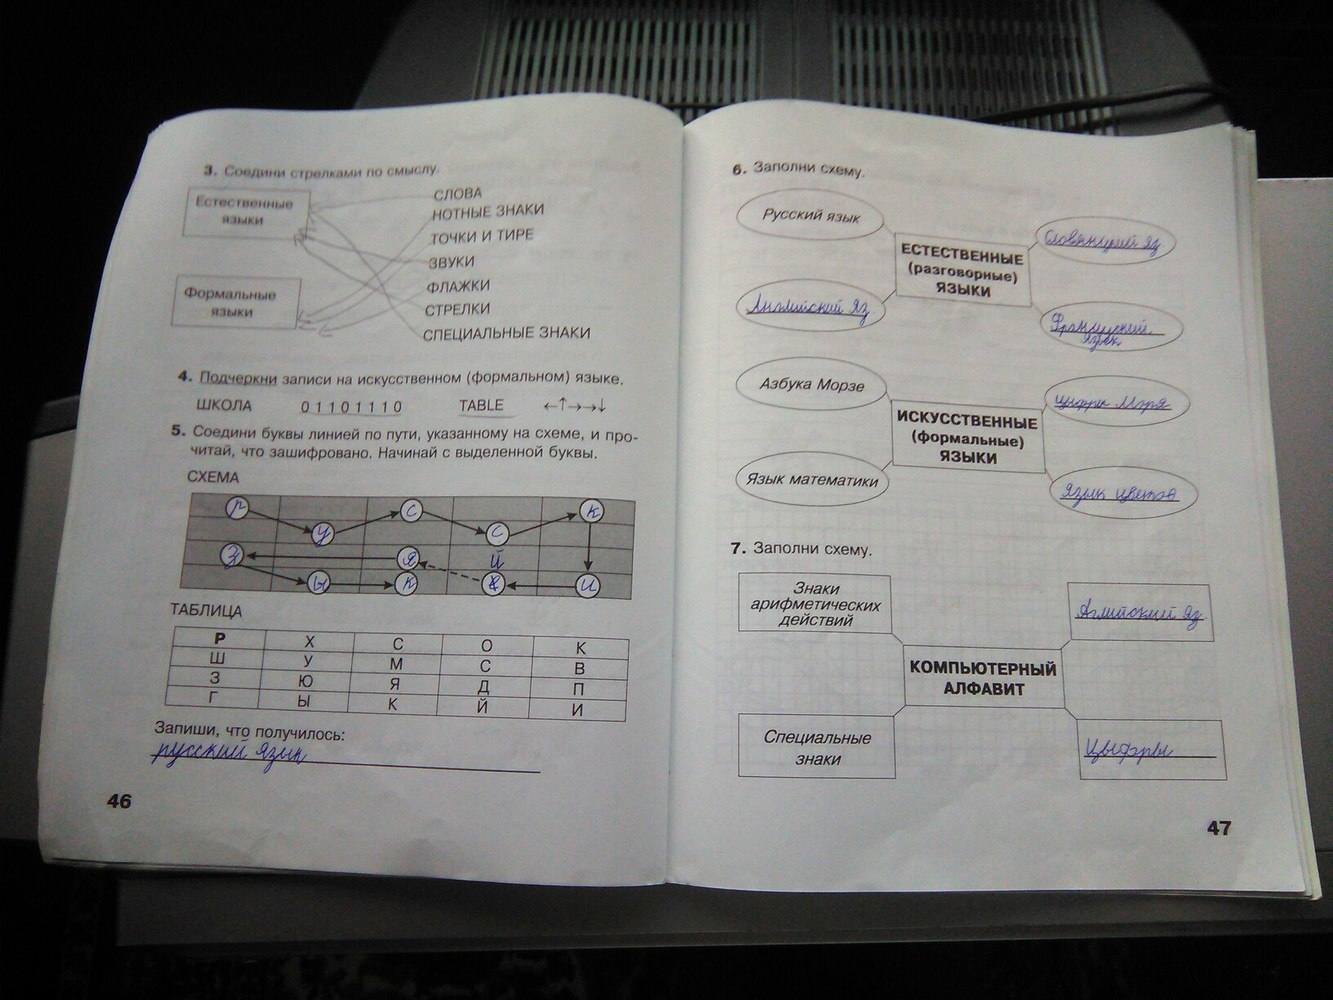 3. Соедини стрелками по смыслу.
Естественные
языки
Формальные
языки
СЛОВА
НОТНЫЕ ЗНАКИ
ТОЧКИ И ТИРЕ
ЗВУКИ
ФЛАЖКИ
СТРЕЛКИ
СПЕЦИАЛЬНЫЕ ЗНАКИ
4. Подчеркни записи на искусственном (формальном) языке.
ШКОЛА 0 1 1 0 1 1 1 0 TABLE ←↑→→↓
5. Соедини буквы линией по пути, указанному на схеме, и про-
читай, что зашифровано. Начинай с выделенной буквы.
СХЕМА
р с к
у с
З Я й
ы к и
ТАБЛИЦА
Р Х С О К
Ш У М С В
З Ю Я Д П
Г Ы К Й И
Запиши, что получилось:
русский язык
46
6. Заполни схему.
Русский язык
Английский яз
ЕСТЕСТВЕННЫЕ
(разговорные)
ЯЗЫКИ
яз
Французский
язык
Азбука Морзе
Язык математики
ИСКУССТВЕННЫЕ
(формальные)
ЯЗЫКИ
Язык цветов
7. Заполни схему.
Знаки
арифметических
действий
Специальные
знаки
КОМПЬЮТЕРНЫЙ
АЛФАВИТ
Аглийский яз
Цыфры
47